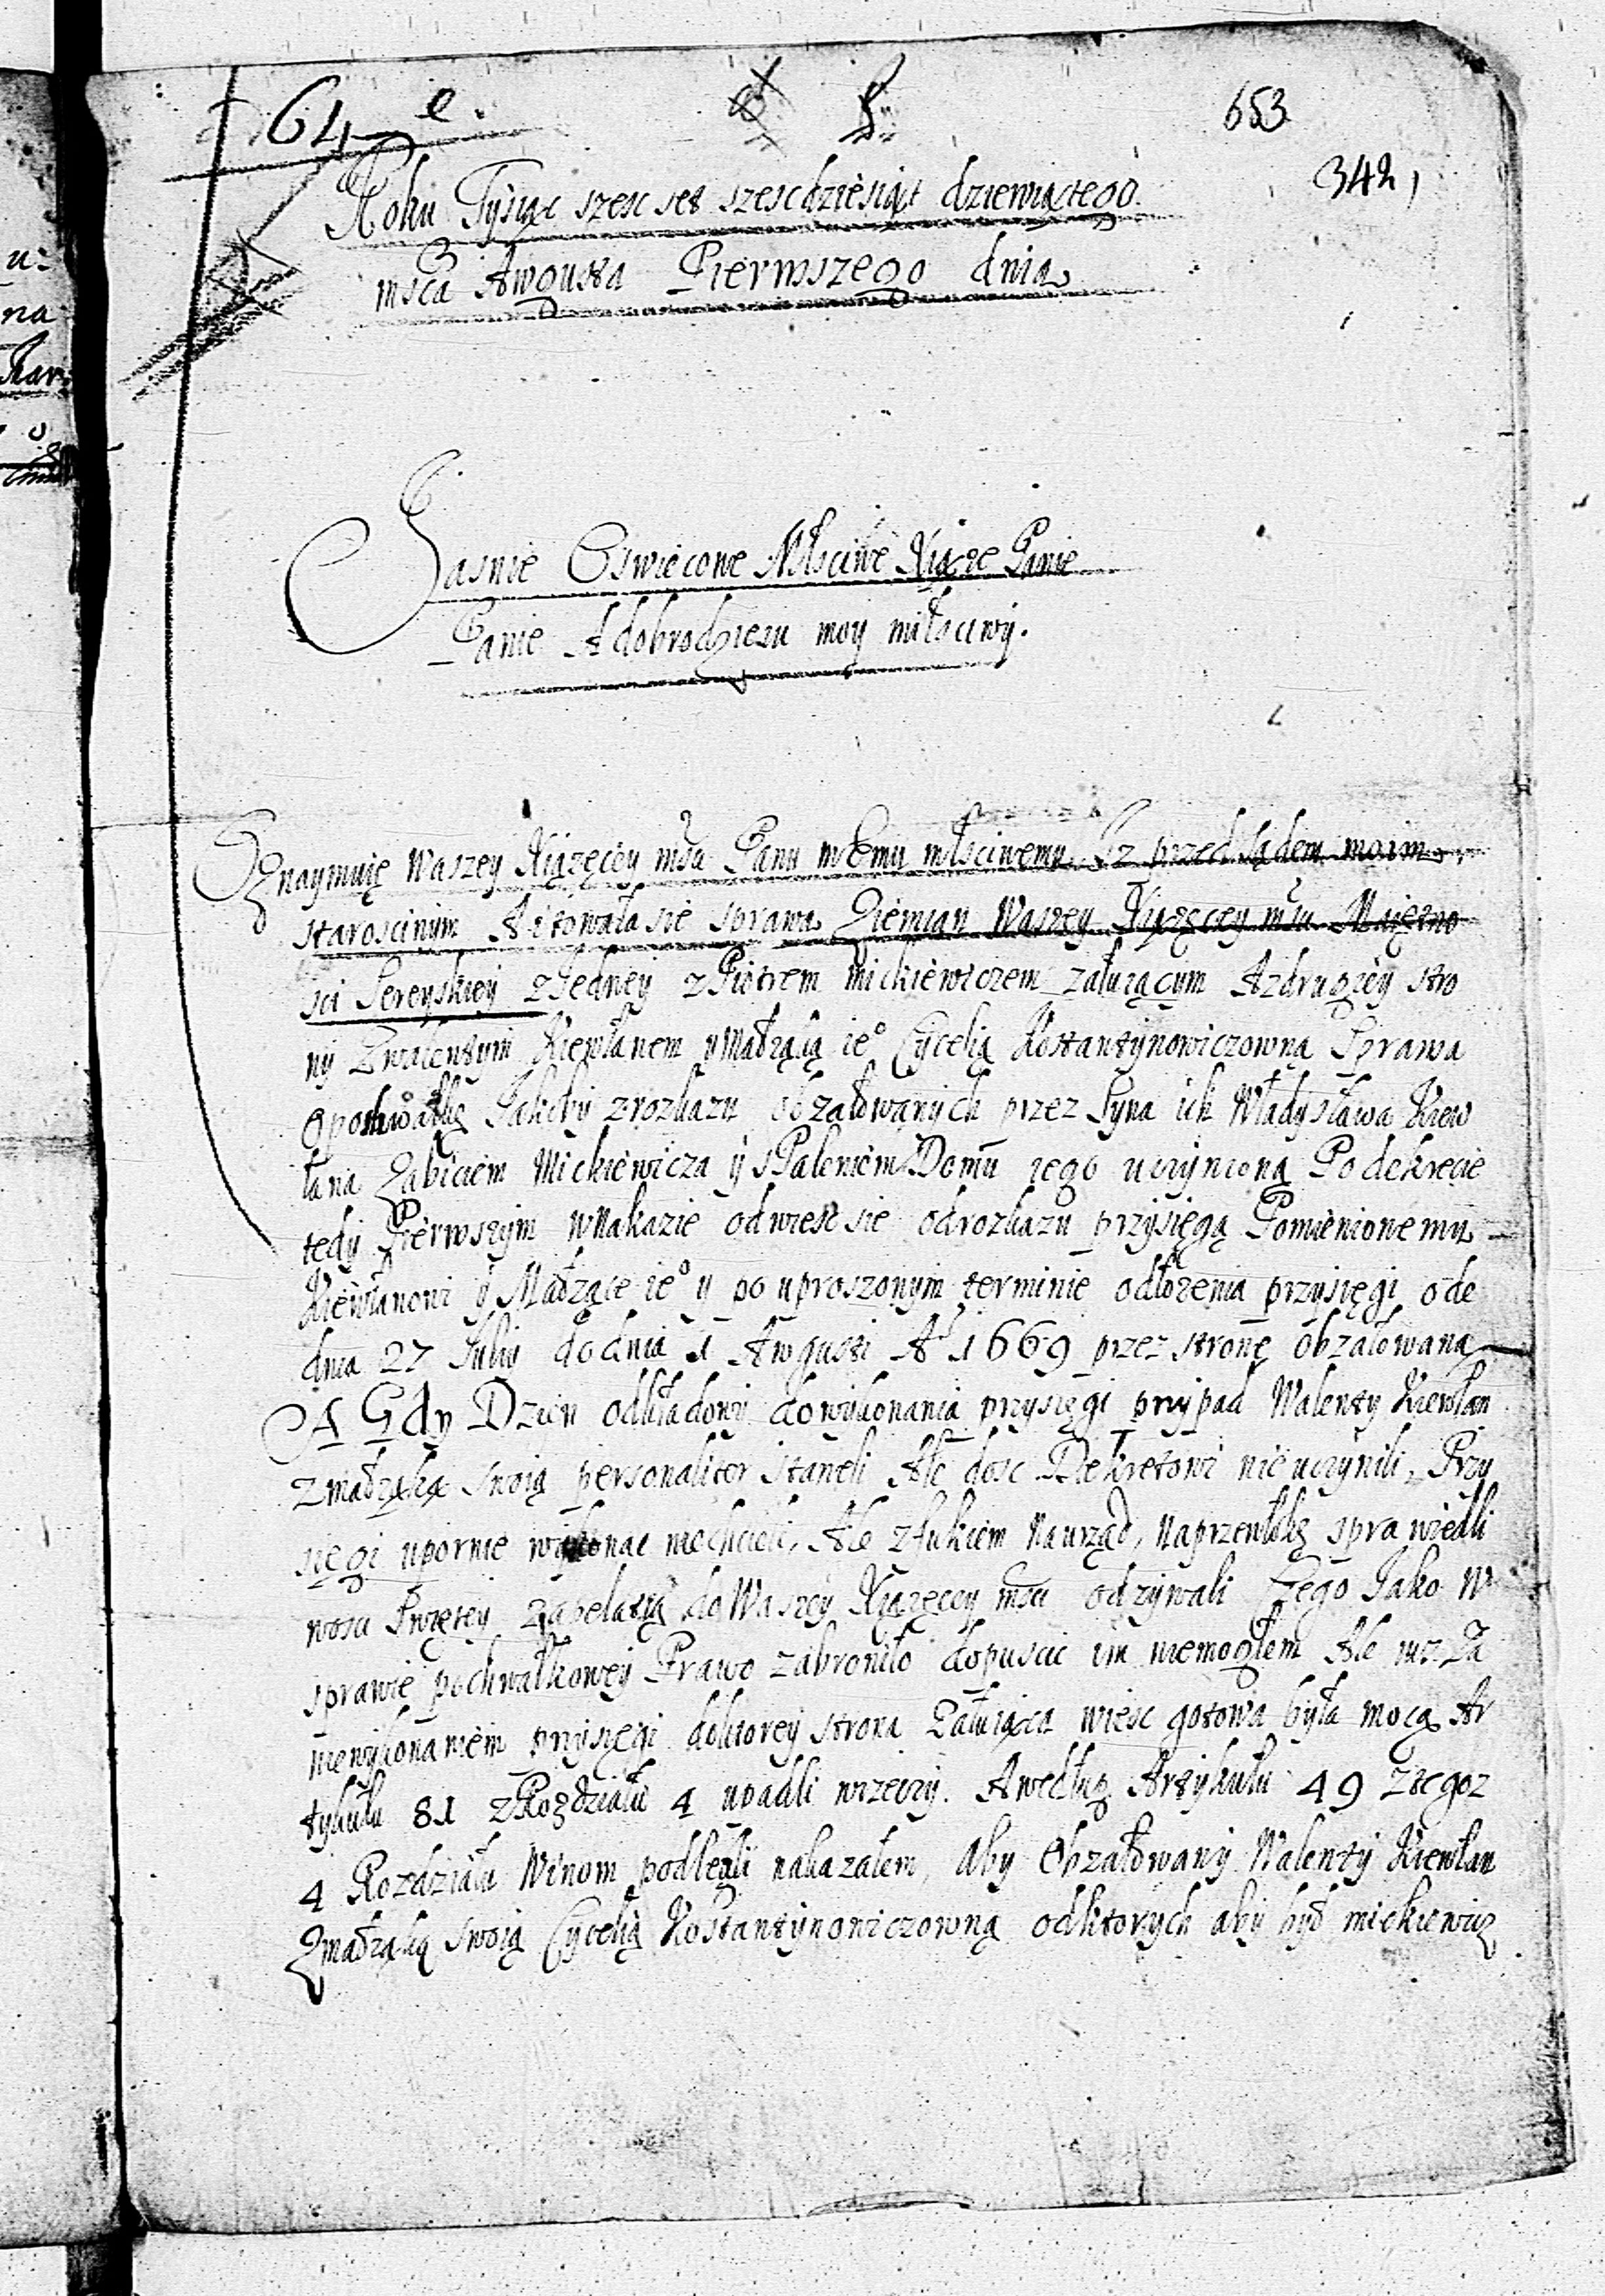 64 e. 653
342
Roku Tysiąc szesc set szescdziesiąt dziewiątego.
msca Awgusta Pierwszego dnia
Jasnie Oswiecone Młsciwe Xiąze Panie
Panie A dobrodzieiu moy miłsciwy.
Oznaymuię Waszey Xiązęcey msci Panu memu młsciwemu Iz przed sądem moim
staroscinym Aitowała sie sprawa Ziemian Waszey Xiązęcey msci Maiętno
sci Sereyskiey z Iedney z Piotrem mickiewiczem załuiącym A zdrugiey stro
ny Zwalentym Kiewłanem y Małząką ie° Cycelią Kostantynowiczowną Sprawa
o pochwałkę Jakoby z rozkazu obzałowanych przez Syna ich Władysława Kiew
łana Zabiciem Mickiewicza y sPaleniem Domu iego uczynioną Po dekrecie
tedy Pierwszym wNakazie odwiesc sie odrozkazu przysięgą Pomienionemu
Kiewłanowi y Małzące ie° y po uproszonym terminie odłozenia przysięgi ode
dnia 27 Iuly do dnia 1 Awgusti A° 1669 przez stronę obzałowaną
A Gdy Dzien odkładowy do wykonania przysięgi przypad Walenty Kiewłan
z małząką swoią personaliter staneli Ale dosc Dekretowi nie uczynili, Przy
sięgi upornie wykonac niechcieli, Ale z fukiem na urząd, na przewłokę sprawiedli
wosci Swiętey zapelatią do Waszey Xiązęcey msci odzywali Czego Jako w
sprawie pochwałkowey Prawo zabroniło dopuscic im niemogłem Ale iuz Za
niewykonaniem przysięgi doktorey strona Załuiąca wiesc gotowa była mocą Ar
tykułu 81 z Rozdziału 4 upadli w rzeczy. A według Artykułu 49 z tegoz
4 Rozdziału Winom podlegli nakazałem, Aby Obzałowany Walenty Kiewłan
Zmałząką swoią Cycelią Kostantynowiczowną odktorych aby był mickiewicz